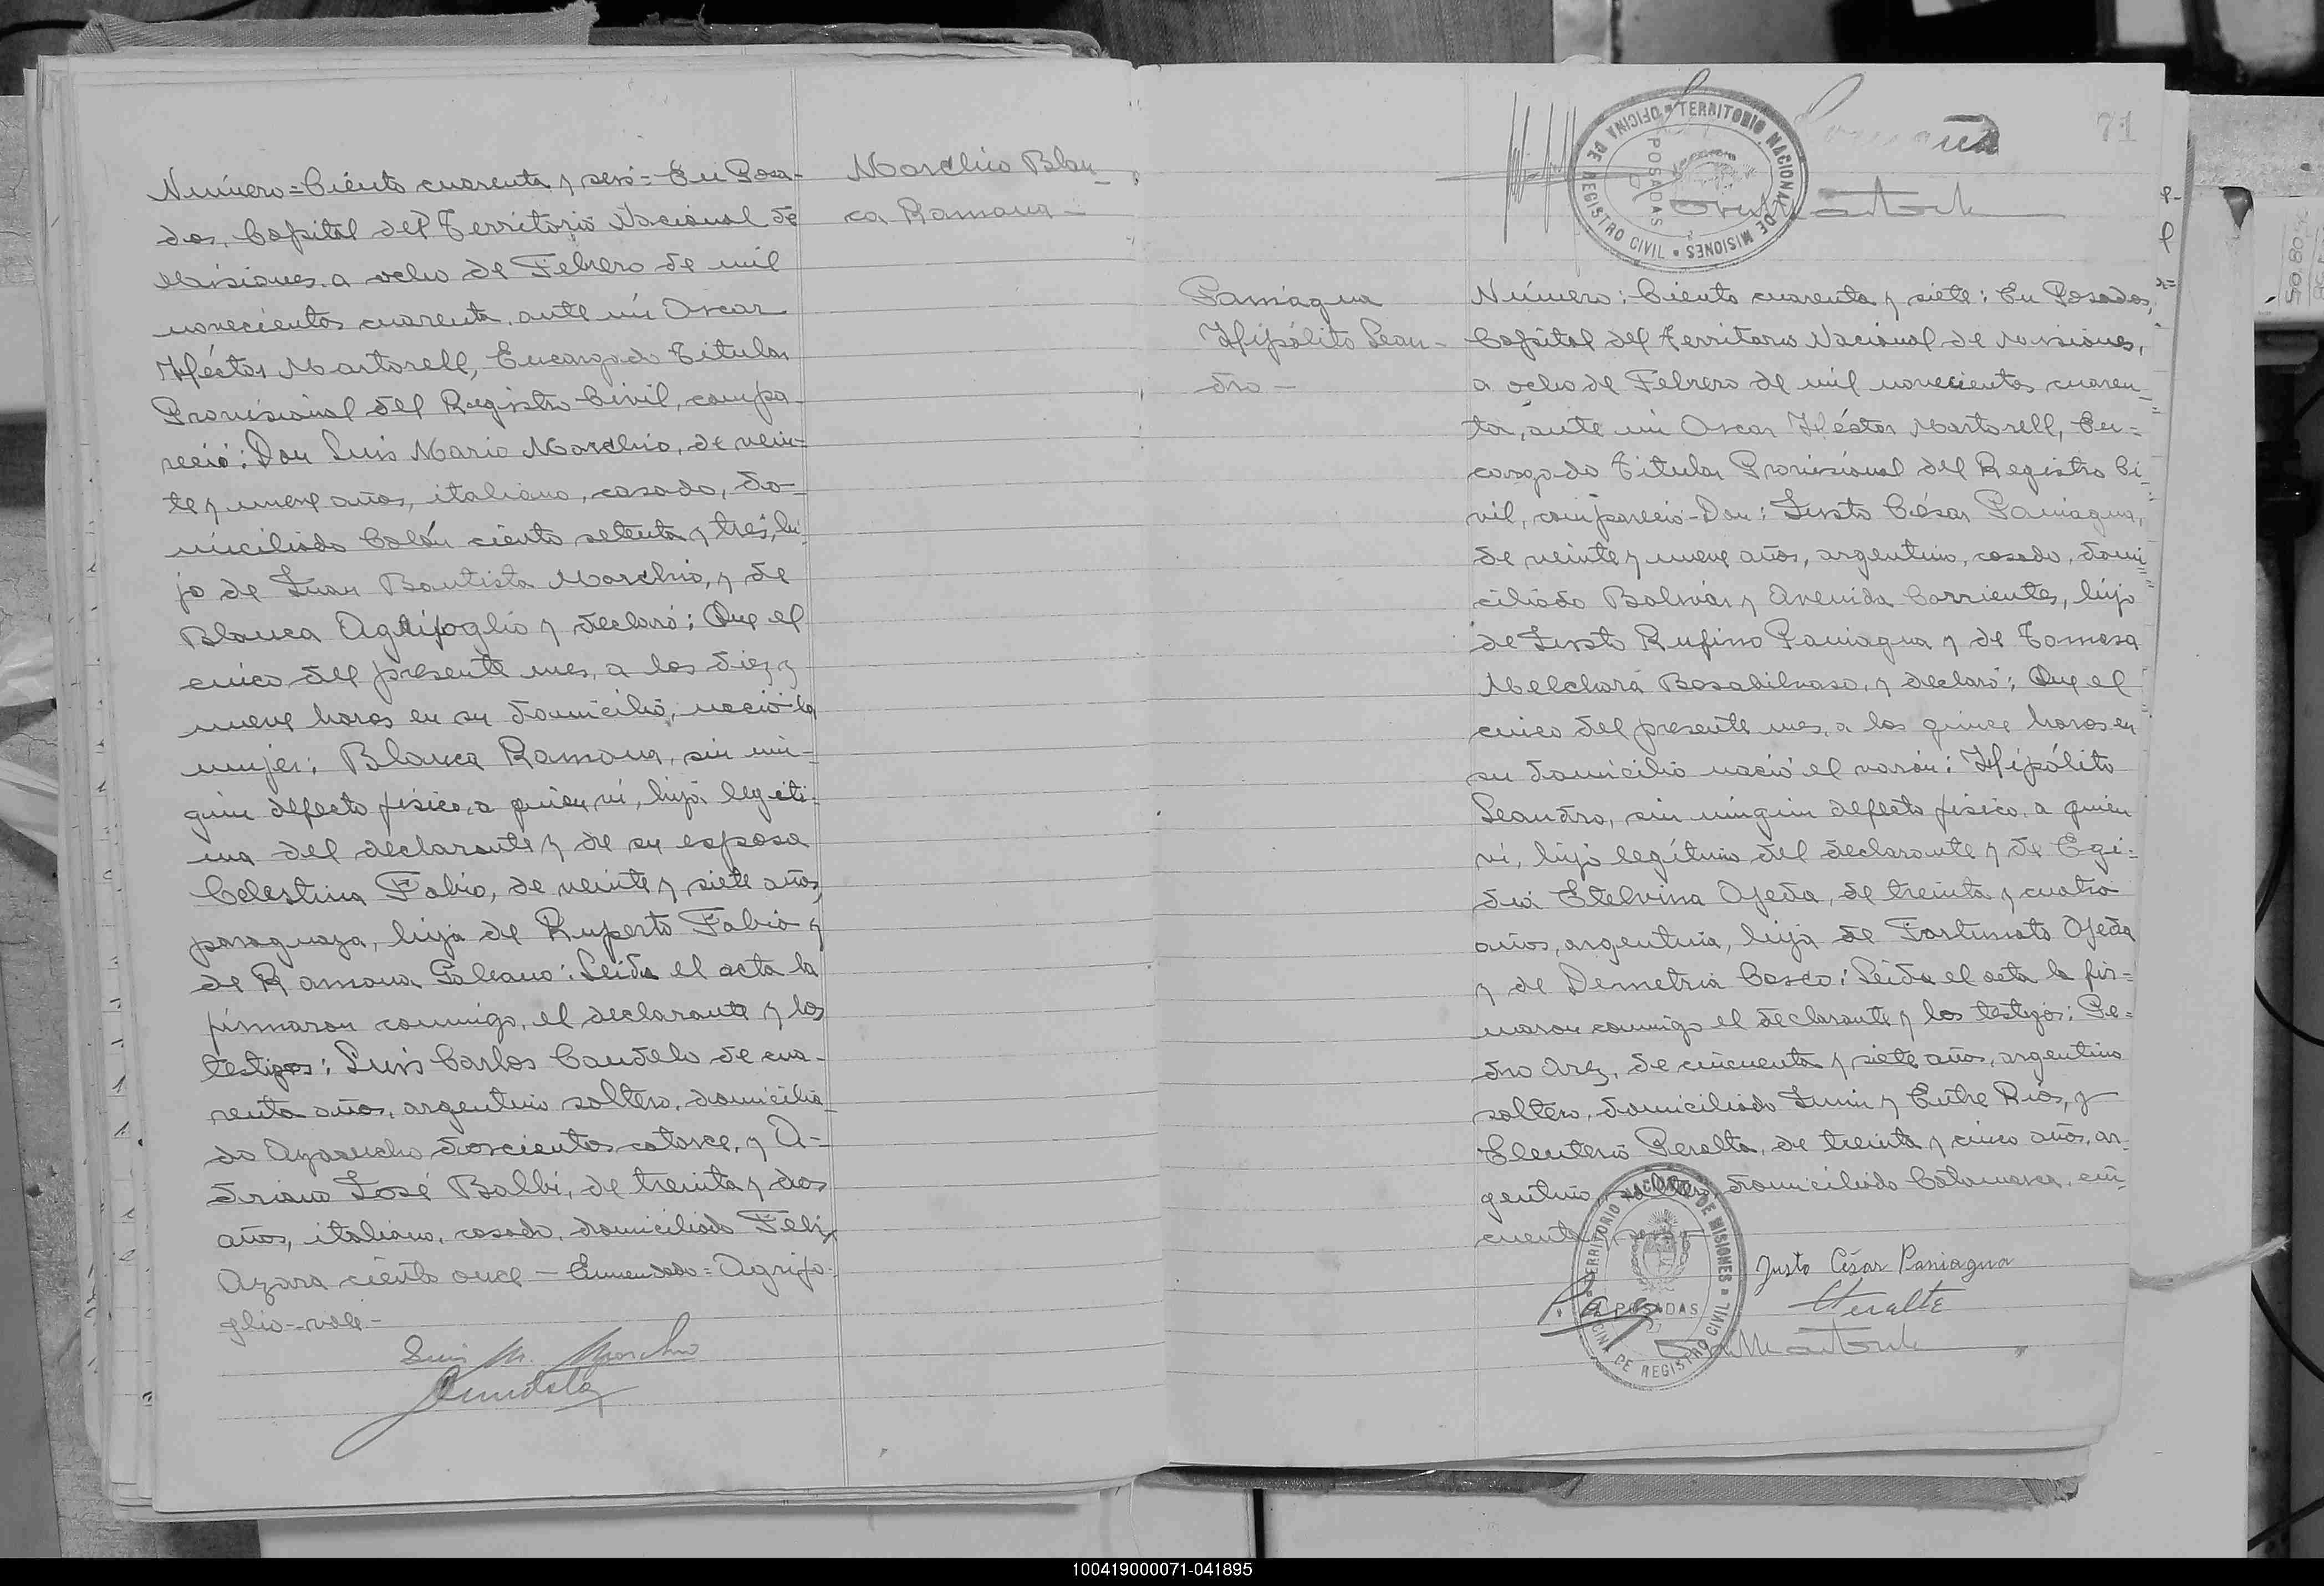 Número = Ciento cuarenta y seis = En Posa-
das, Capital del Territorio Nacional de
Misiones, a ocho de Febrero de mil
novecientos cuarenta, ante mí Oscar
Héctor Martorell, Encargado Titular
Provisional del Registro Civil, compa-
reció: Don Luis Mario Marchio, de vein-
te y nueve años, italiano, casado, do-
miciliado Colón ciento setenta y tres, hi-
jo de Juan Bautista Marchio, y de
Blanca Agrifoglio y declaró: Que el
cinco del presente mes, a las diez y
nueve horas en su domicilio, nació la
mujer: Blanca Ramona, sin nin-
gún defecto físico, a quien ví, hija legíti-
ma del declarante y de su esposa
Celestina Fabio, de veinte y siete años,
paraguaya, hija de Ruperto Fabio y
de Ramona Galeano: Leída el acta la
firmaron conmigo, el declarante y los
testigos: Luis Carlos Candelo de cua-
renta años, argentino soltero, domicilia-
do Ayacucho doscientos catorce, y A-
driano José Balbi, de treinta y dos
años, italiano, casado, domiciliado Felix
Azara ciento once — Enmendado = Agrifo-
glio - vale -
Luis M. Marchio
Marchio Blan-
ca Ramona -
71
OFICINA DE REGISTRO CIVIL • TERRITORIO NACIONAL DE MISIONES
POSADAS
Paniagua
Hipólito Lean-
dro -
Número: Ciento cuarenta y siete: En Posadas,
Capital del Territorio Nacional de Misiones,
a ocho de Febrero de mil novecientos cuaren-
ta, ante mí Oscar Héctor Martorell, En-
cargado Titular Provisional del Registro Ci-
vil, compareció - Don: Justo César Paniagua,
de veinte y nueve años, argentino, casado, domi-
ciliado Bolivar y Avenida Corrientes, hijo
de Justo Rufino Paniagua y de Tomasa
Melchora Bosabilvaso, y declaró: Que el
cinco del presente mes, a las quince horas en
su domicilio nació el varón: Hipólito
Leandro, sin ningún defecto físico, a quien
ví, hijo legítimo del declarante y de Egi-
dia Etelvina Ojeda, de treinta y cuatro
años, argentina, hija de Fortunato Ojeda
y de Demetria Casco: Leída el acta la fir-
maron conmigo el declarante y los testigos: Pe-
dro Arz, de cincuenta y siete años, argentino
soltero, domiciliado Junin y Entre Rios, y
Eleuterio Peralta, de treinta y cinco años, ar-
gentino, soltero, domiciliado Catamarca, cin-
cuenta
Justo César Paniagua
TERRITORIO NACIONAL DE MISIONES • OFICINA DE REGISTRO CIVIL
POSADAS
100419000071-041895